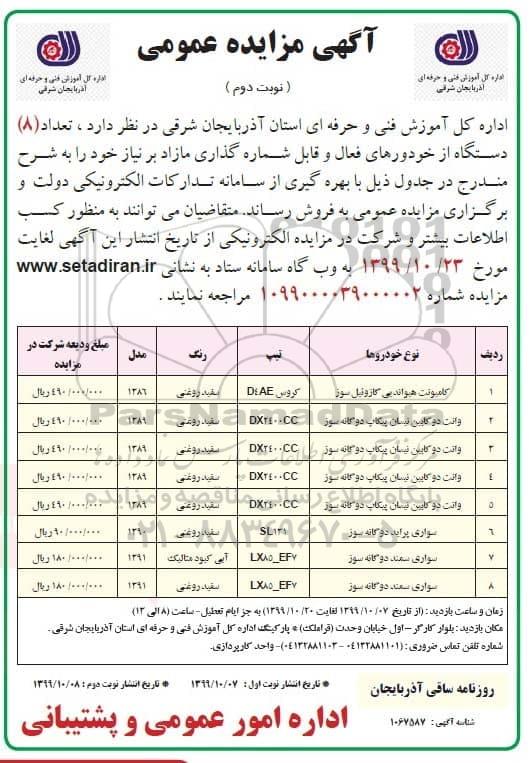 آگهی مزایده عمومی
( نوبت دوم )
اداره کل آموزش فنی و حرفه ای
آذربایجان شرقی
اداره کل آموزش فنی و حرفه ای
آذربایجان شرقی
اداره کل آموزش فنی و حرفه ای استان آذربایجان شرقی در نظر دارد ، تعداد(۸)
دستگاه از خودورهای فعال و قابل شماره گذاری مازاد بر نیاز خود را به شرح
مندرج در جدول ذیل با بهره گیری از سامانه تدارکات الکترونیکی دولت و
برگزاری مزایده عمومی به فروش رساند. متقاضیان می توانند به منظور کسب
اطلاعات بیشتر و شرکت در مزایده الکترونیکی از تاریخ انتشار این آگهی لغایت
مورخ ۱۳۹۹/۱۰/۲۳ به وب گاه سامانه ستاد به نشانی www.setadiran.ir
مزایده شماره ۱۰۹۹۰۰۰۰۳۹۰۰۰۰۰۲ مراجعه نمایند .
ردیف نوع خودروها تیپ رنگ مدل مبلغ ودیعه شرکت در مزایده
۱ کامیونت هیوندایی گازوئیل سوز کروس D٤AE سفید روغنی ۱۳۸۶ ۴۹۰/۰۰۰/۰۰۰ ریال
۲ وانت دو کابین نیسان پیکاپ دوگانه سوز DX۲۴۰۰CC سفید روغنی ۱۳۸۹ ۴۶۰/۰۰۰/۰۰۰ ریال
۳ وانت دو کابین نیسان پیکاپ دوگانه سوز DX۲۴۰۰CC سفید روغنی ۱۳۸۹ ۴۶۰/۰۰۰/۰۰۰ ریال
۴ وانت دو کابین نیسان پیکاپ دوگانه سوز DX۲۴۰۰CC سفید روغنی ۱۳۸۹ ۴۶۰/۰۰۰/۰۰۰ ریال
۵ وانت دو کابین نیسان پیکاپ دوگانه سوز DX۲۴۰۰CC سفید روغنی ۱۳۸۹ ۴۶۰/۰۰۰/۰۰۰ ریال
۶ سواری پراید دوگانه سوز SL۱۳۱ سفید روغنی ۱۳۹۰ ۹۰/۰۰۰/۰۰۰ ریال
۷ سواری سمند دوگانه سوز LX۸۵_EF۷ آبی کبود متالیک ۱۳۹۱ ۱۸۰/۰۰۰/۰۰۰ ریال
۸ سواری سمند دوگانه سوز LX۸۵_EF۷ سفید روغنی ۱۳۹۱ ۱۸۰/۰۰۰/۰۰۰ ریال
ParsNamadData
پایگاه اطلاع رسانی مناقصه و مزایده
۰۲۱-۸۸۳۴۹۶۷۰-۵
زمان و ساعت بازدید : (از تاریخ ۱۳۹۹/۱۰/۰۷ لغایت ۱۳۹۹/۱۰/۲۰) به جز ایام تعطیل- ساعت (۸ الی ۱۳)
مکان بازدید : بلوار کارگر – اول خیابان وحدت (قراملک) * پارکینگ اداره کل آموزش فنی و حرفه ای استان آذربایجان شرقی .
شماره تلفن تماس ضروری : (۰۴۱۳۲۸۸۱۱۰۱ - ۰۴۱۳۲۸۸۱۱۰۳)- واحد کارپردازی.
روزنامه ساقی آذربایجان
* تاریخ انتشار نوبت اول : ۱۳۹۹/۱۰/۰۷ * تاریخ انتشار نوبت دوم : ۱۳۹۹/۱۰/۰۸
شناسه آگهی : ۱۰۶۷۵۸۷
اداره امور عمومی و پشتیبانی